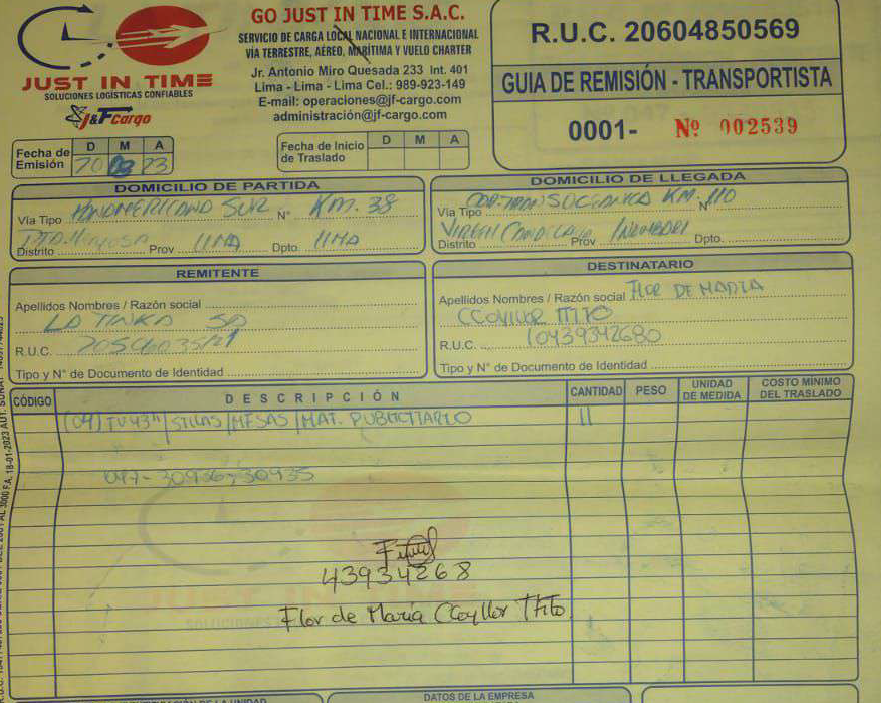 JUST IN TIME
SOLUCIONES LOGÍSTICAS CONFIABLES
J&F Cargo
GO JUST IN TIME S.A.C.
SERVICIO DE CARGA LOCAL NACIONAL E INTERNACIONAL
VÍA TERRESTRE, AÉREO, MARÍTIMA Y VUELO CHARTER
Jr. Antonio Miro Quesada 233 Int. 401
Lima - Lima - Lima Cel.: 989-923-149
E-mail: operaciones@jf-cargo.com
administración@jf-cargo.com
R.U.C. 20604850569
GUIA DE REMISIÓN - TRANSPORTISTA
0001- Nº 002539
Fecha de Emisión D M A
20 23
Fecha de Inicio de Traslado D M A
DOMICILIO DE PARTIDA
Vía Tipo PANAMERICANA SUR N° KM. 38
Distrito Prov LIMA Dpto LIMA
DOMICILIO DE LLEGADA
Vía Tipo KM. 110 N°
Distrito VIRGEN Prov Dpto.
REMITENTE
Apellidos Nombres / Razón social
LA TINKA SA
R.U.C.
Tipo y N° de Documento de Identidad
DESTINATARIO
Apellidos Nombres / Razón social FLOR DE MARIA
CCOYLLOR TTITO
R.U.C. 10439342680
Tipo y N° de Documento de Identidad
CÓDIGO DESCRIPCIÓN CANTIDAD PESO UNIDAD DE MEDIDA COSTO MÍNIMO DEL TRASLADO
(04) TV 43" / SILLAS / MESAS / MAT. PUBLICITARIO 11
30936-30935
43934268
Flor de María Ccoyllor Ttito
DATOS DE LA EMPRESA